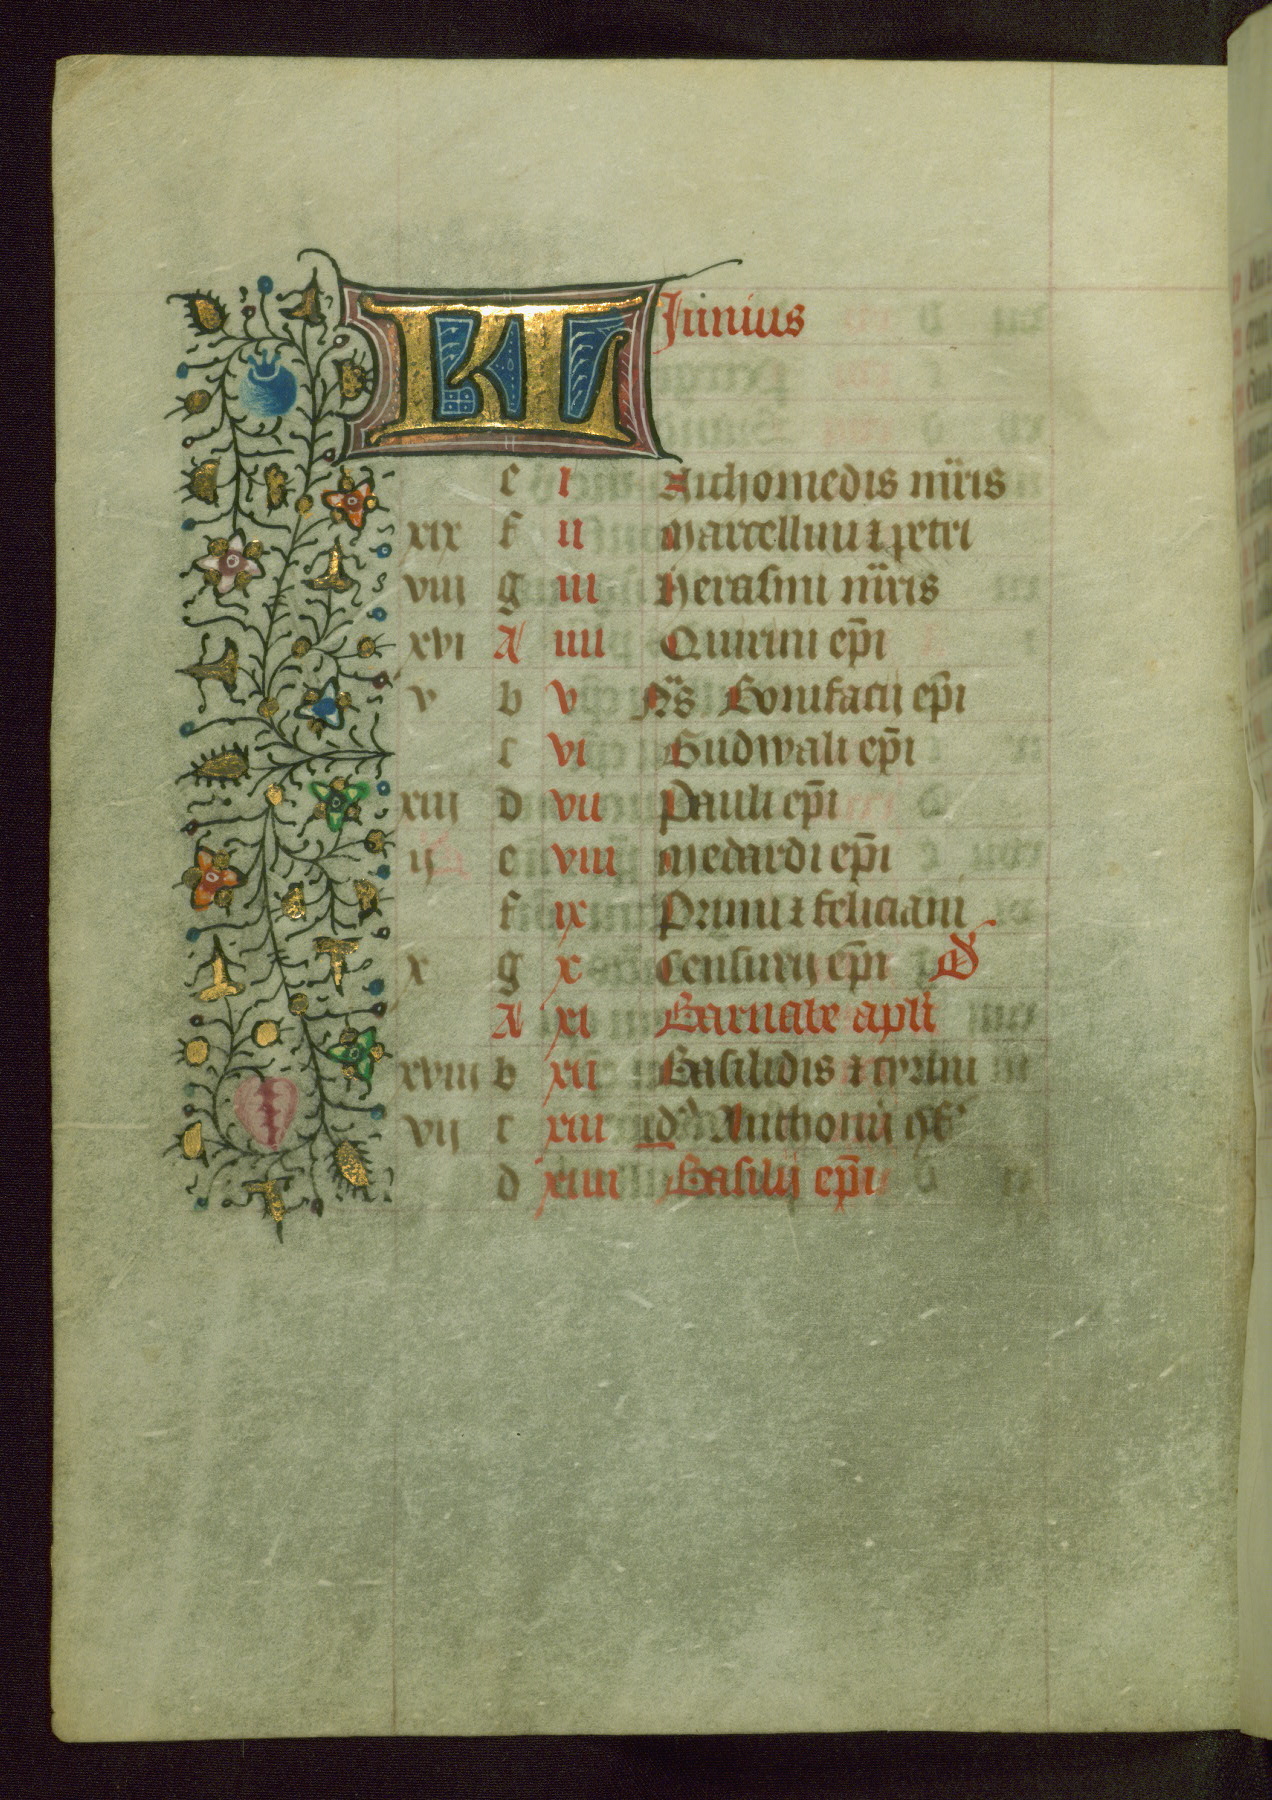 KL Junius
e i Nichomedis mr̃is
xix f ii Marcellini ⁊ petri
viii g iii Herasmi mr̃is
xvi A iiii Quirini ep̃i
v b v Nõs Bonifacij ep̃i
c vi Gudwali ep̃i
xiij d vii Pauli ep̃i
ij e viii Medardi ep̃i
f ix Primi ⁊ feliciani
x g x Censurij ep̃i D
A xi Barnabe apl̃i
xviii b xii Basilidis ⁊ cyrini
vij c xiii id' Anthonij
d xiiii Basilij ep̃i